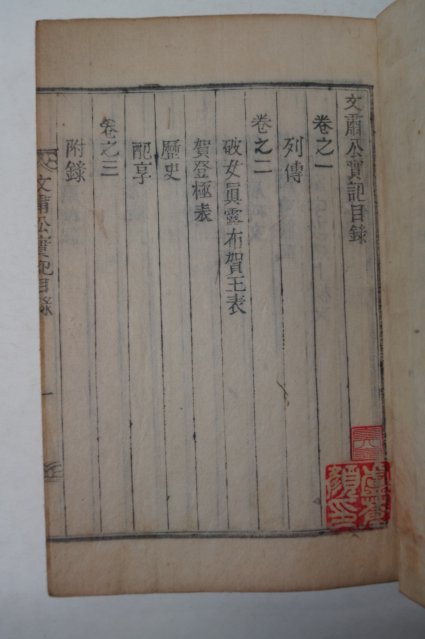 文肅公實記目錄
卷之一
列傳
卷之二
破女眞露布賀王表
賀登極表
歷史
配享
卷之三
附錄
文肅公實記目錄
一